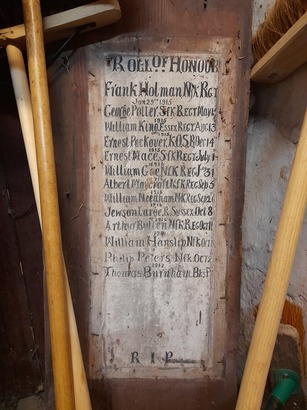 ROLL OF HONOUR
Frank Holman Nfk Regt
Jan 29th 1915
George Potter Sfk Regt May 4
1915
William King Essex Regt Aug 13
1915
Ernest Peckover K.O.S.B Oct 14
1915
Ernest Mace Sfk Regt July 1
1916
William Goe Nfk Reg
1916
Albert Sfk Reg Sep 5
1916
William Needham Nfk Reg Sep 26
1916
Jewson Large R. Sussex Oct 8
1916
Arthur Bullen Nfk Reg Oct
1916
William Hanslip Nfk Oct
Philip Peters Nfk Oct
1917
Thomas Burnham
R I P